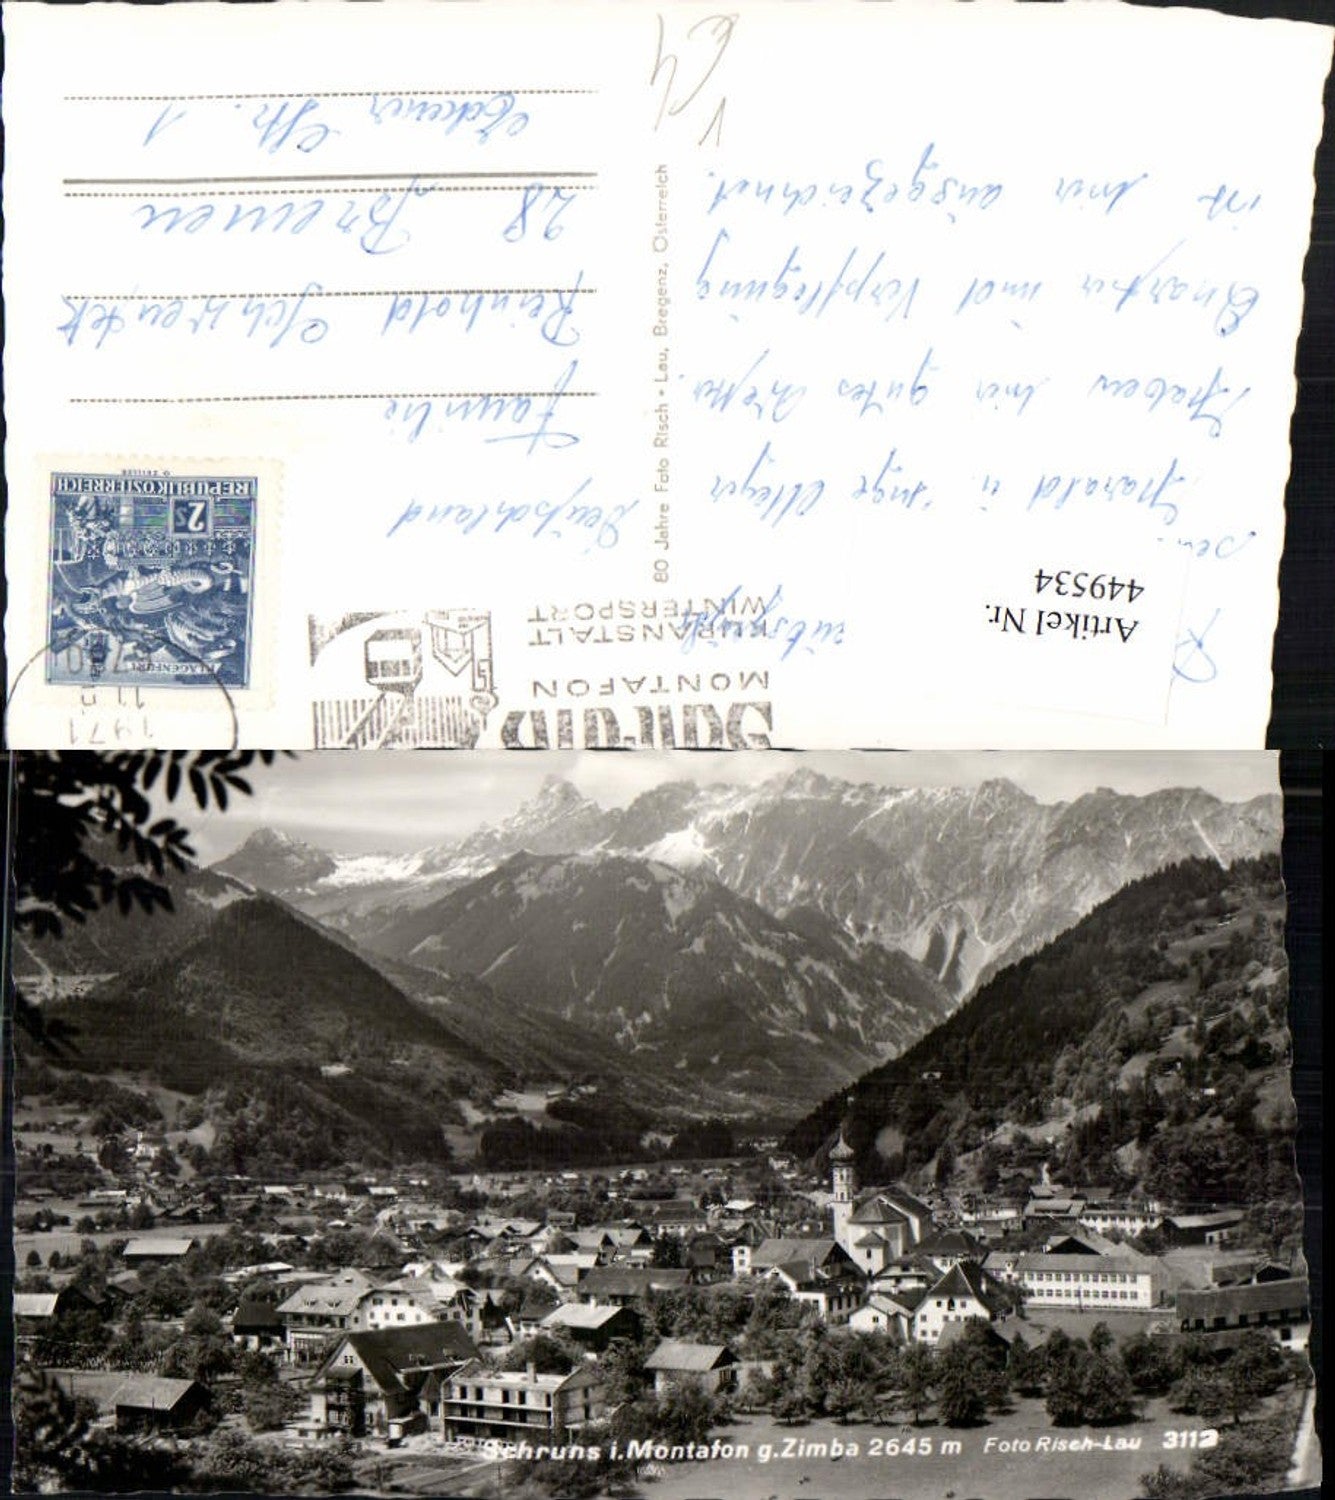 Quartier und Verpflegung
ist hier ausgezeichnet.
Haben hier gutes Wetter.
Harald u. Inge Meyer
Artikel Nr.
449534
80 Jahre Foto Risch • Lau, Bregenz, Österreich
Schruns
MONTAFON
KURANSTALT
WINTERSPORT
1971
REPUBLIK ÖSTERREICH
2 S
KLAGENFURT
O. ZEILLER
Deutschland
Familie
Reinhold Schwentek
28 Bremen
Str. 1
Schruns i. Montafon g. Zimba 2645 m Foto Risch-Lau 3112